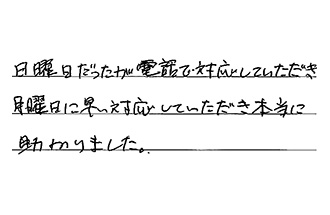 日曜日だったが電話で対応していただき
月曜日に早い対応していただき本当に
助かりました。